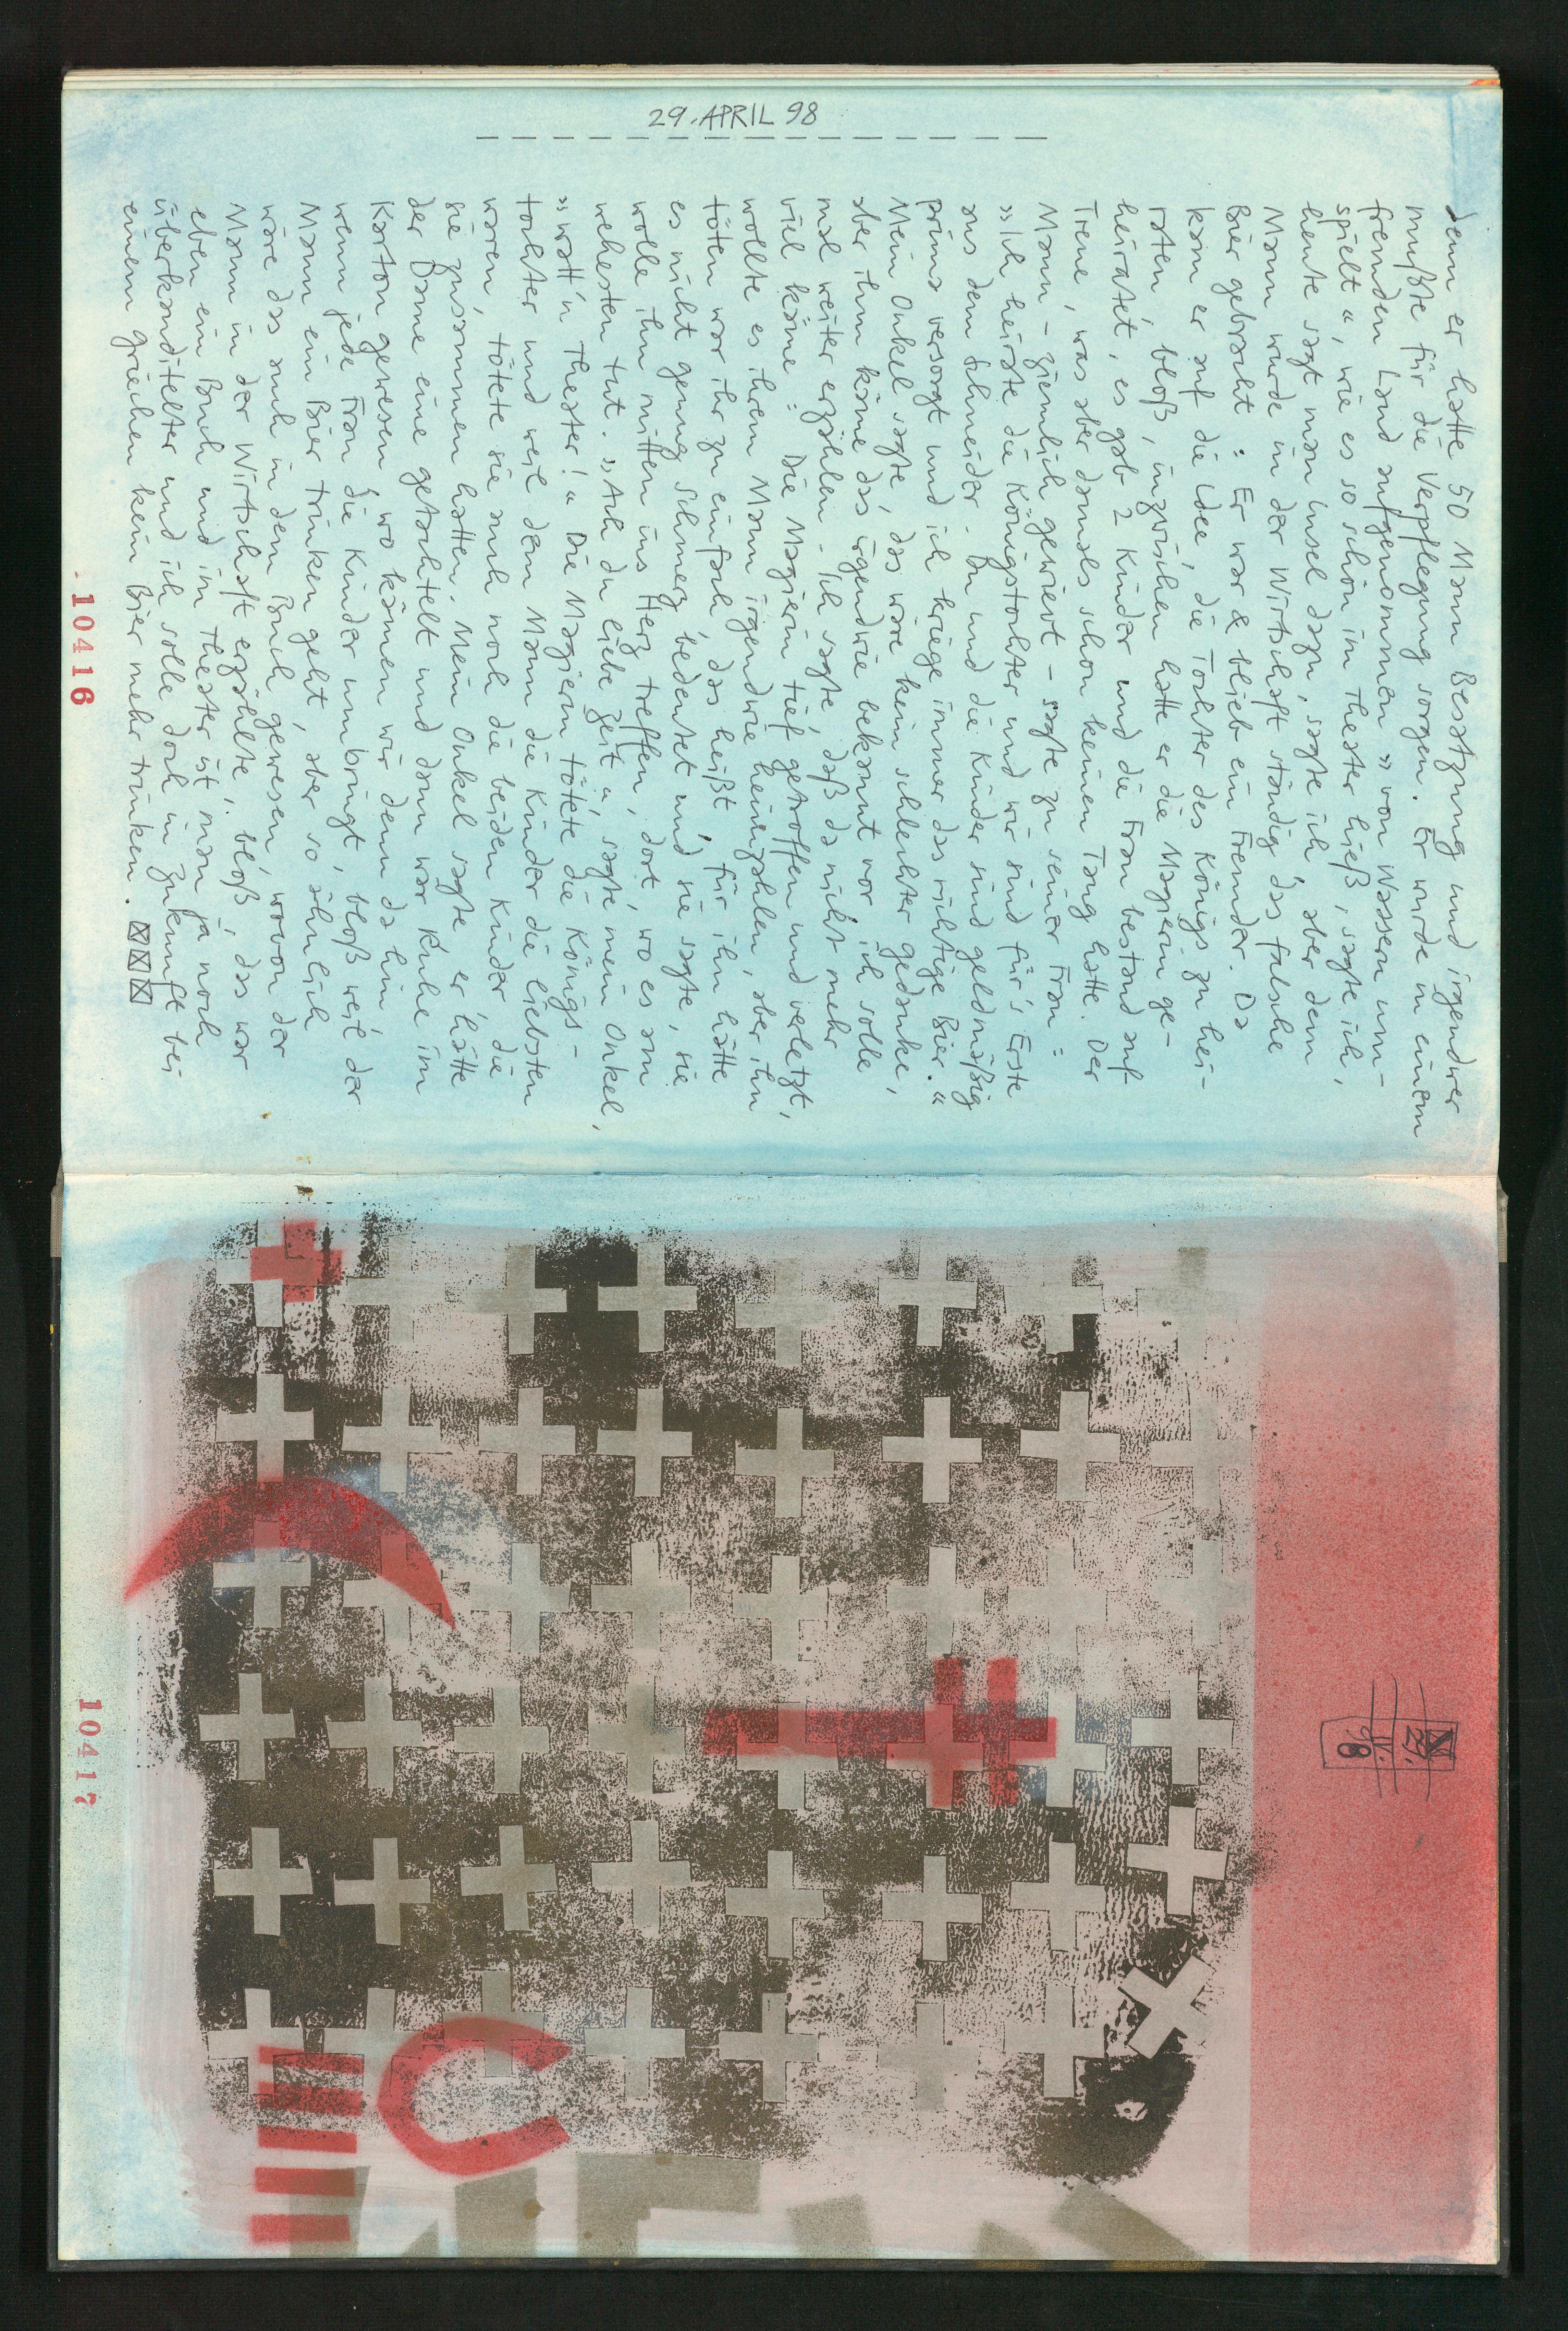 29. APRIL 98
denn er hatte 50 Mann Besatzung und irgendwer
mußte für die Verpflegung sorgen. Er wurde in einem
fremden Land aufgenommen »von Wassern um-
spielt«, wie es so schön im Theater hieß, sagte ich,
heute sagt man Insel dazu, sagte ich, aber dem
Mann wurde in der Wirtschaft ständig das falsche
Bier gebracht: Er war & blieb ein Fremder. Da
kam er auf die Idee, die Tochter des Königs zu hei-
raten, bloß, inzwischen hatte er die Magierin ge-
heiratet, es gab 2 Kinder und die Frau bestand auf
Treue, was aber damals schon keinen Tang hatte. Der
Mann - ziemlich gewieft - sagte zu seiner Frau:
»Ich heirate die Königstochter und wir sind für's Erste
aus dem Schneider. Du und die Kinder sind geldmäßig
prima versorgt und ich kriege immer das richtige Bier.«
Mein Onkel sagte, das wäre kein schlechter Gedanke,
aber ihm käme das irgendwie bekannt vor, ich solle
mal weiter erzählen. Ich sagte, daß da nicht mehr
viel käme: Die Magierin tief getroffen und verletzt,
wollte es ihrem Mann irgendwie heimzahlen, aber ihn
töten war ihr zu einfach, das heißt, für ihn hätte
es nicht genug Schmerz bedeutet und sie sagte, sie
wolle ihn mitten ins Herz treffen, dort, wo es am
wehesten tut. »Ach du liebe Zeit«, sagte mein Onkel,
»watt'n Theater!« Die Magierin tötete die Königs-
tochter und weil dem Mann die Kinder die liebsten
waren, tötete sie auch noch die beiden Kinder, die
sie zusammen hatten. Mein Onkel sagte, er hätte
der Dame eine getachtelt und dann wär Ruhe im
Karton gewesen, wo kämen wir denn da hin,
wenn jede Frau die Kinder umbringt, bloß weil der
Mann ein Bier trinken geht, aber so ähnlich
wäre das auch in dem Buch gewesen, wovon der
Mann in der Wirtschaft erzählte, bloß, das war
eben ein Buch und im Theater ist man ja noch
überkanditelter und ich solle doch in Zukunft bei
einem Griechen kein Bier mehr trinken.
10416
29.
IV.
98
10417